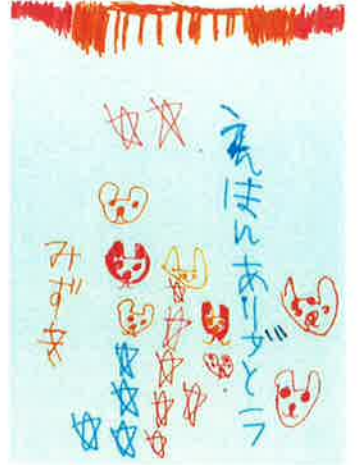 えほんありがとう
みずき